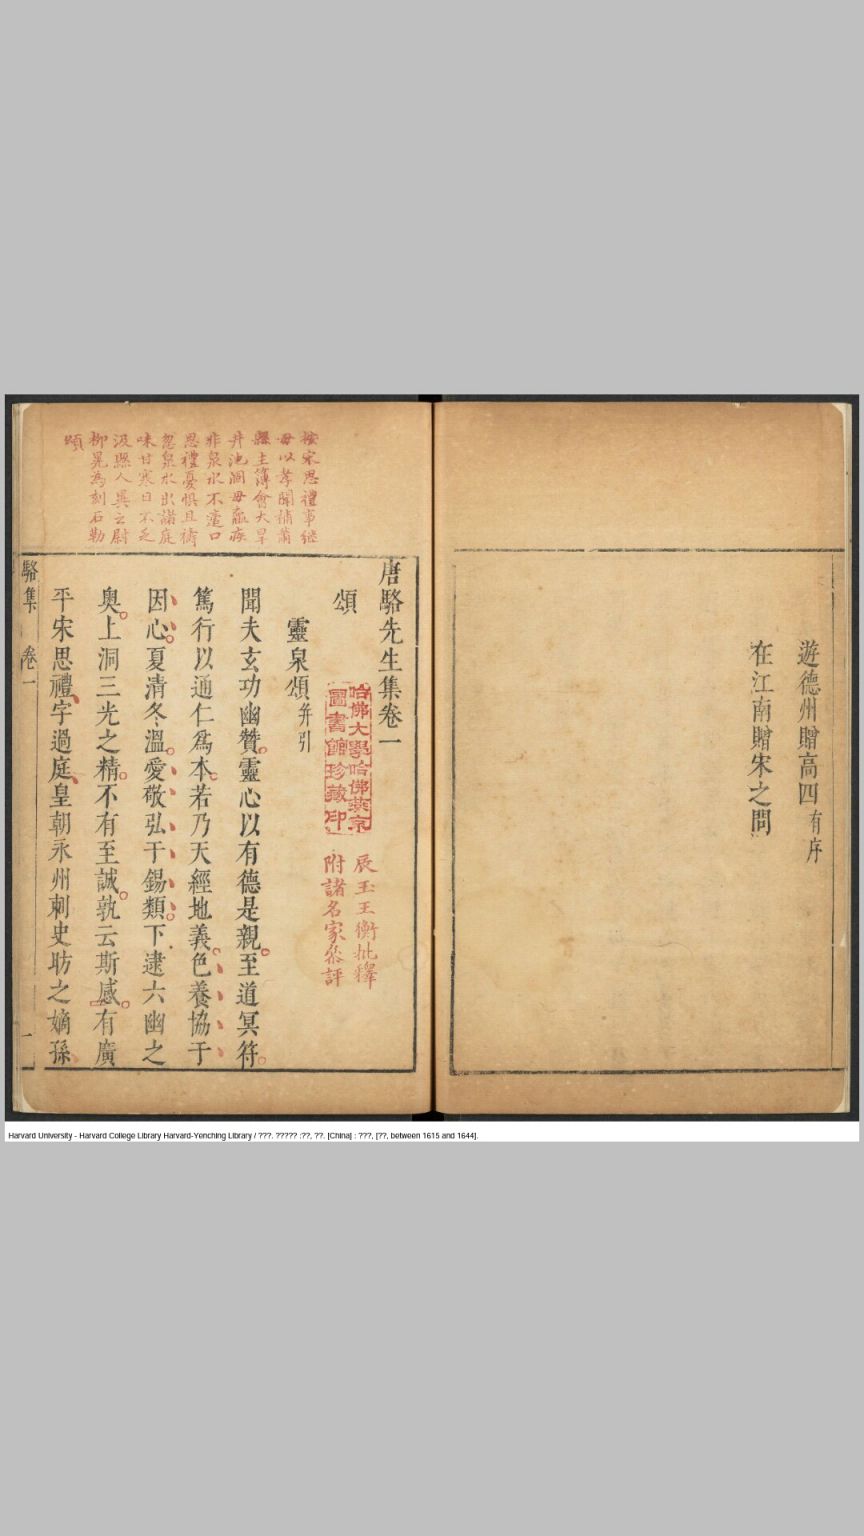 遊德州贈高四有序
在江南贈宋之問
按宋思禮事継
母以孝聞補蕭
縣主簿會大旱
井池涸母羸疾
非泉水不適口
思禮憂惧且禱
忽泉水出諸庭
味甘寒日不乏
汲縣人異之尉
柳晃為刻石勒
頌
唐駱先生集卷一
辰玉王衡批釋
附諸名家叅評
哈佛大學哈佛燕京
圖書館珍藏印
頌
靈泉頌并引
聞夫玄功幽贊靈心以有德是親至道冥符
篤行以通仁爲本若乃天經地義色養協于
因心夏清冬溫愛敬弘于錫類下逮六幽之
奥上洞三光之精不有至誠孰云斯感有廣
平宋思禮字過庭皇朝永州刺史昉之嫡孫
駱集 卷一 一
Harvard University - Harvard College Library Harvard-Yenching Library / ???. ????? :??, ??. [China] : ???, [??, between 1615 and 1644].